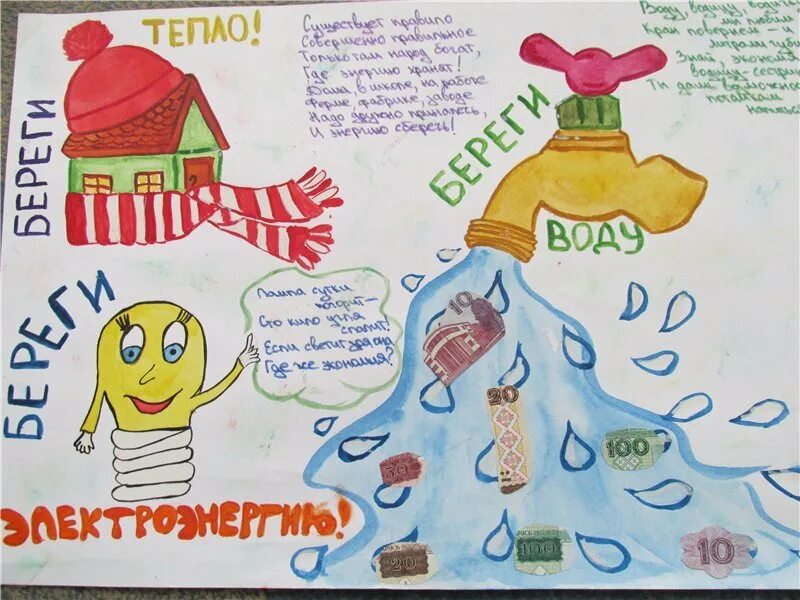 БЕРЕГИ
ТЕПЛО!
Существует правило
Совершенно правильное
Только там народ богат,
Где энергию хранят!
Дома, в школе, на работе
Ферме, фабрике, заводе
Надо дружно принапечь,
И энергию сберечь!
БЕРЕГИ
ВОДУ
Воду, водицу,
мы любим
Кран повернем - и
литрами губим
Знай, экономя
водицу-сестрицу
Ты дашь возможность
потомкам
БЕРЕГИ
ЭЛЕКТРОЭНЕРГИЮ!
Лампа сутки
погорит-
Сто кило угля
спалит!
Если светит зря она
Где же экономия?
10
20
50
100
20
100
10